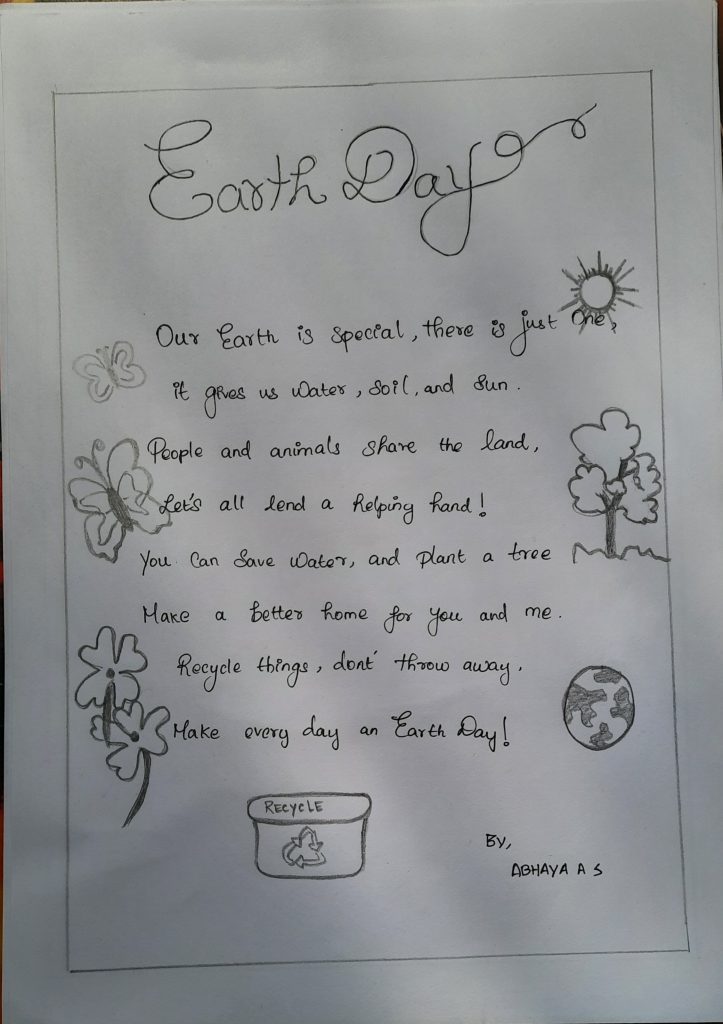 Earth Day
Our Earth is special, there is just one,
it gives us water, soil, and sun.
People and animals share the land,
Let's all lend a helping hand!
You can save water, and plant a tree
Make a better home for you and me.
Recycle things, dont' throw away,
Make every day an Earth Day!
RECYCLE
By,
ABHAYA A S